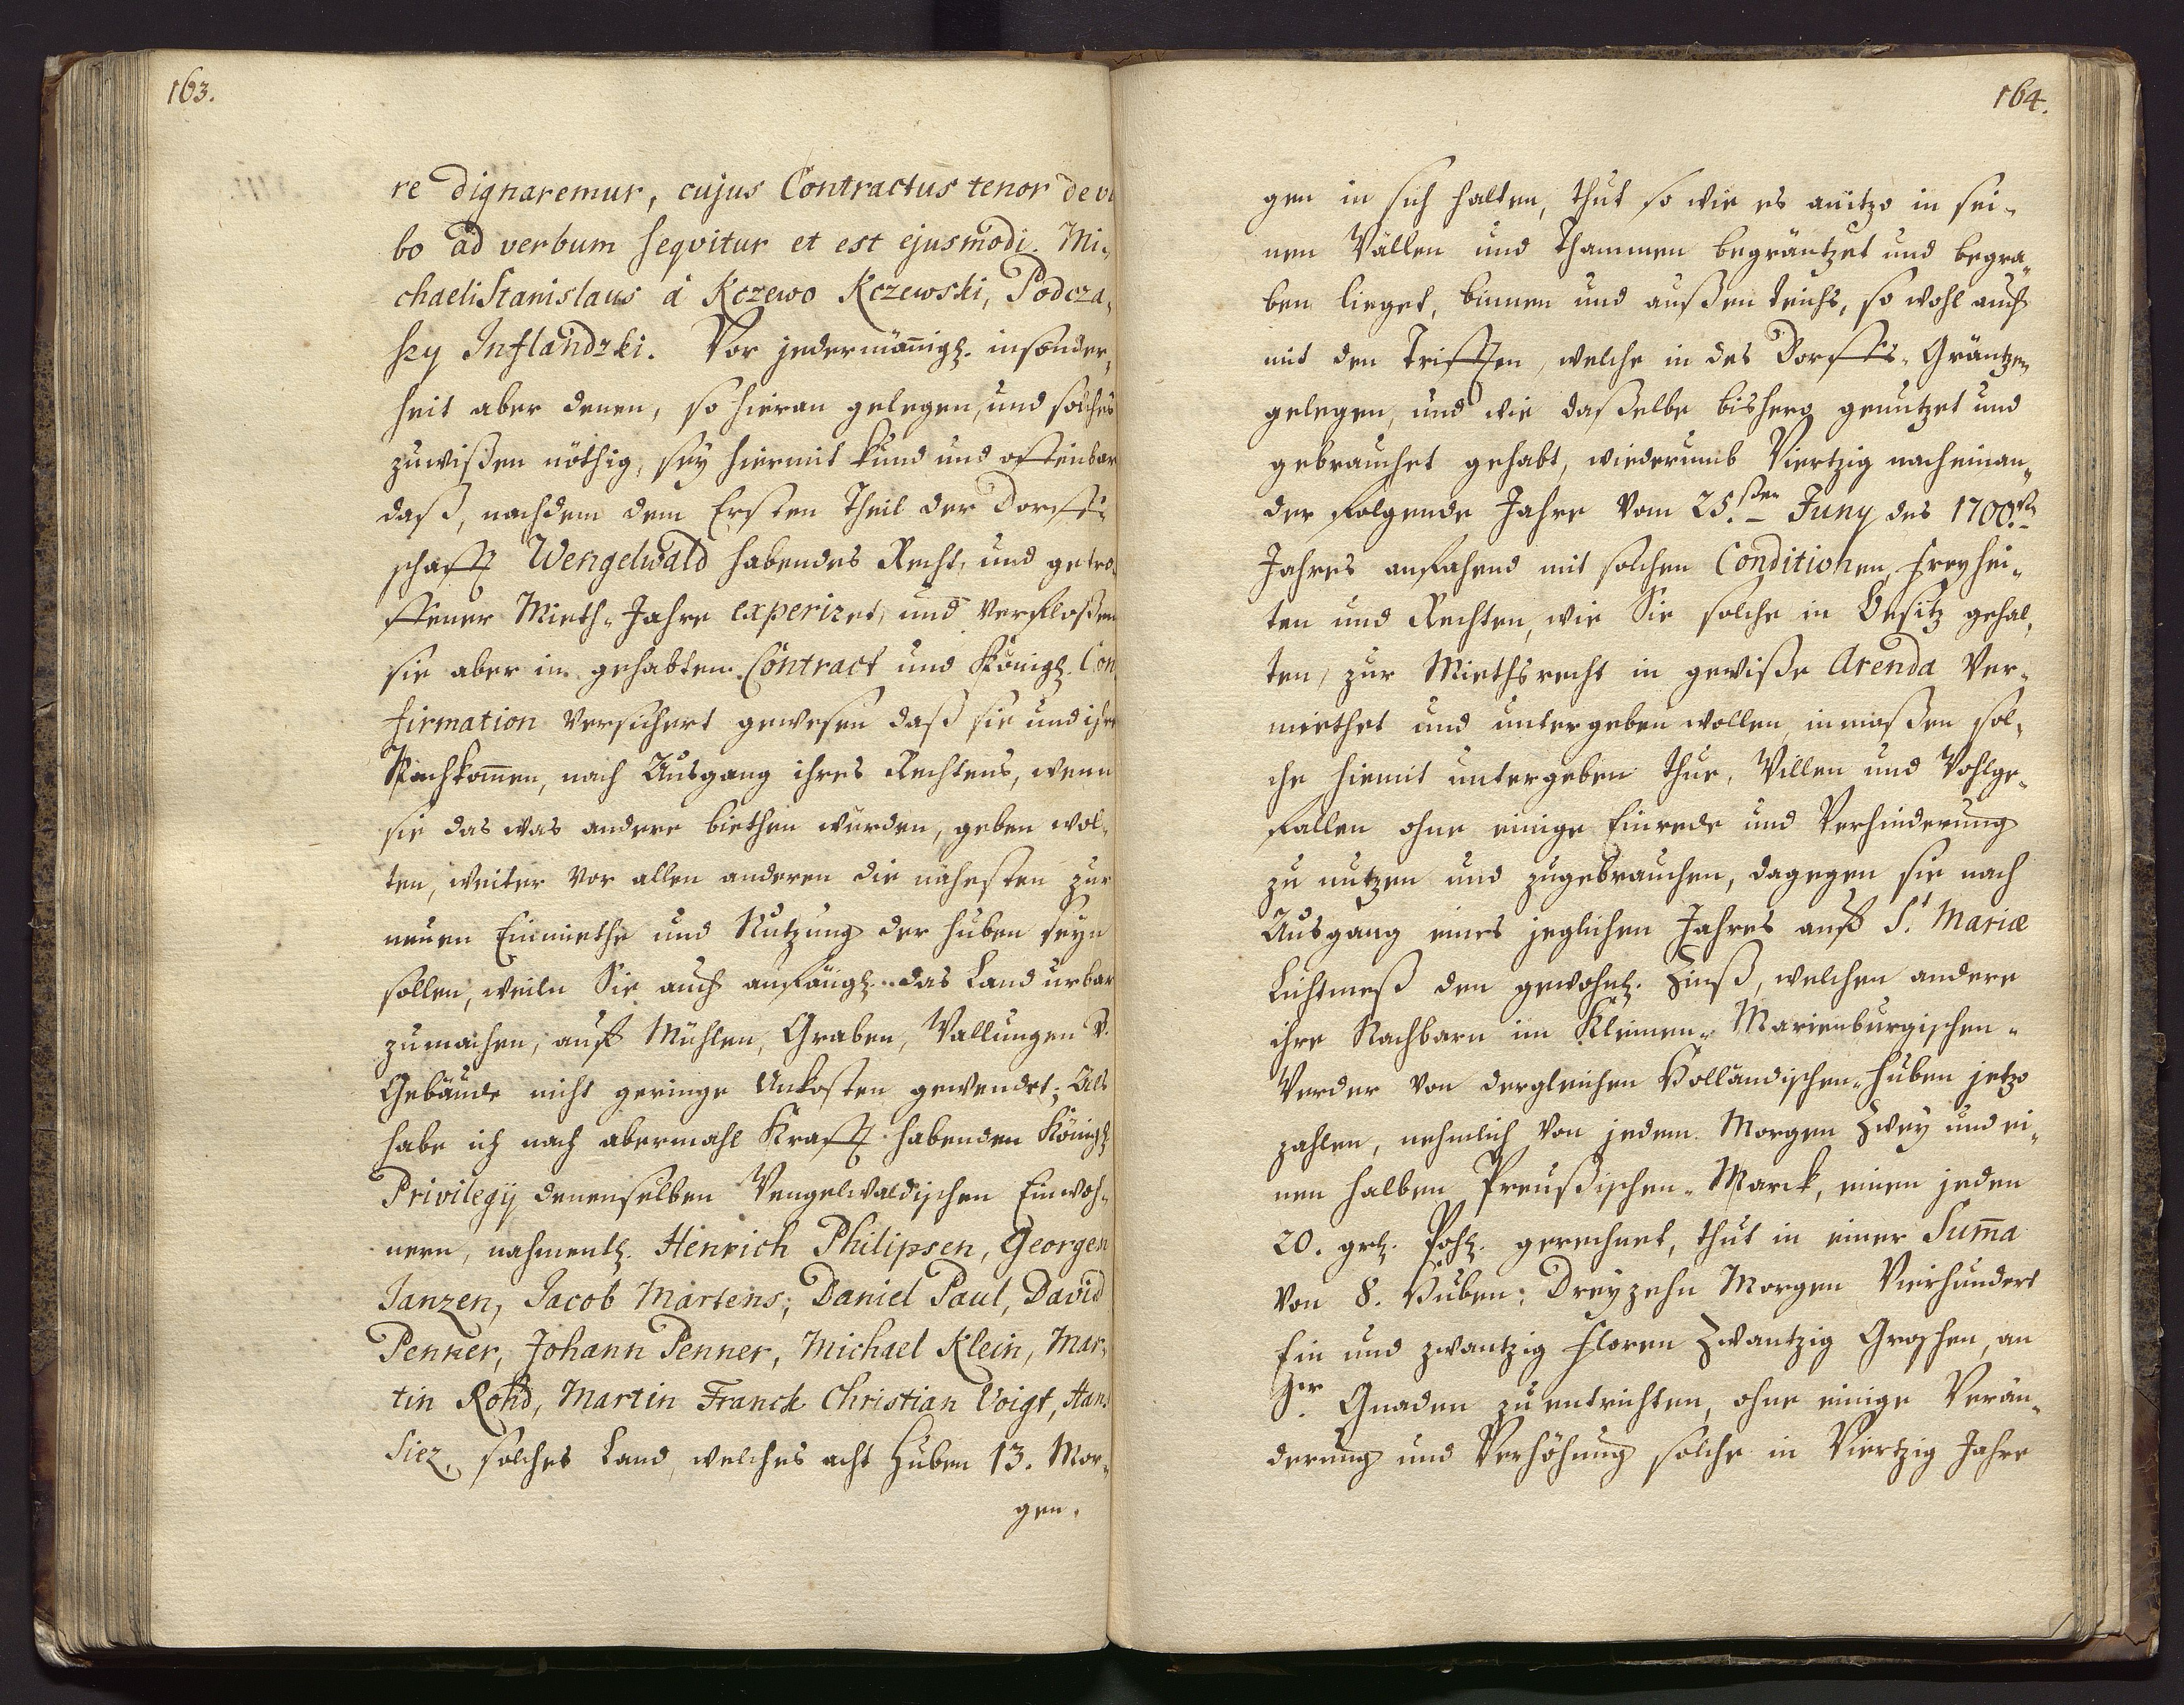 163.
re dignaremur, cujus Contractus tenor de ve
bo ad verbum sequitur et est ejusmodi. Mi-
chaeli Stanislaus à Kczewo Kczewski, Podcza-
szy Inflandzki. Vor jedermännigl. insonder-
heit aber denen, so hieran gelegen, und solches
zuwißen nöthig, sey hiermit kund und offenbar
daß, nachdem dem Ersten Theil der Dorff-
schafft Wengelwald habendes Recht, und getro-
ffener Mieth-Jahre experiret, und verfloßen
sie aber im gehabten Contract und Königl. Con
firmation versichert gewesen daß sie und ihre
Nachkom̄en, nach Ausgang ihres Rechtens, wenn
sie das was andere biethen würden, geben wol-
ten, weiter vor allen anderen die nähesten zur
neuen Einmiethe und Nutzung der Huben seyn
sollen, weiln Sie auch anfängl. das Land urbar
zumachen, auf Mühlen, Graben, Wallungen u.
Gebäude nicht geringe Unkosten gewendet; Als
habe ich nach abermahl Krafft habenden Königl
Privilegij denenselben Wengelwaldischen Einwoh-
nern, nahmentl. Henrich Philipsen, Georgen
Janzen, Jacob Martens, Daniel Paul, David
Penner, Johann Penner, Michael Klein, Mar-
tin Rohd, Martin Franck Christian Voigt, Hans
Siez, solches Land, welches acht Huben 13. Mor-
gen.
164.
gen in sich halten, thut so wie es anitzo in sei-
nen Wällen und Thammen begräntzet und begra-
ben lieget, binnen und außen teichs, so wohl auch
mit den Trifften, welche in des Dorffs-Gräntzen
gelegen, und wie daßelbe bishero genutzet und
gebrauchet gehabt, wiederumb Viertzig nacheinan-
der folgende Jahre vom 25.sten Juny des 1700.ten
Jahres anfahend mit solchen Conditionen, Freyhei-
ten und Rechten, wie Sie solche in Besitz gehal-
ten, zur Miethsrecht in gewiße Arenda ver-
miethet und untergeben wollen, inmaßen sol-
che hiemit untergeben thue, Willen und Wohlge-
fallen ohne einige Einrede und Verhinderung
zu nutzen und zugebrauchen, dagegen sie nach
Ausgang eines jeglichen Jahres auf St. Mariæ
Lichtmeß den gewohnl. Zinß, welchen andere
ihre Nachbarn im Kleinen-Marienburgischen-
Werder von dergleichen Holländischen-Huben jetzo
zahlen, nehmlich von jedem Morgen Zwey und ei-
nen halben Preußischen-Marck, einen jeden
20. grl. Pohl. gerechnet, thut in einer Sum̄a
von 8. Huben; Dreyzehn Morgen Vierhundert
Ein und zwantzig Floren Zwantzig Groschen, an
Ihr. Gnaden zu entrichten, ohne einige Verän-
derung und Verhöhung solche in Viertzig Jahre